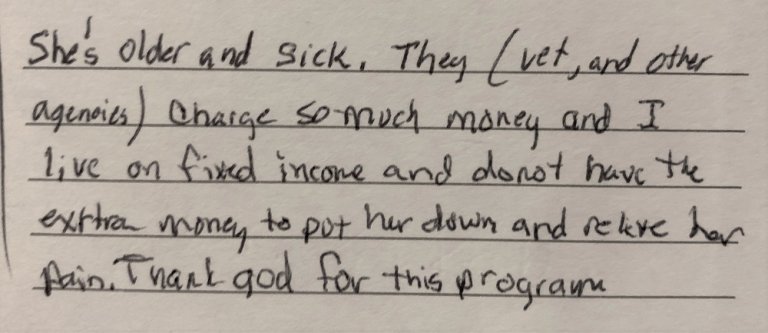 She's older and sick. They (vet, and other
agencies) charge so much money and I
live on fixed income and donot have the
exrtra money to put her down and releve her
pain. Thank god for this program